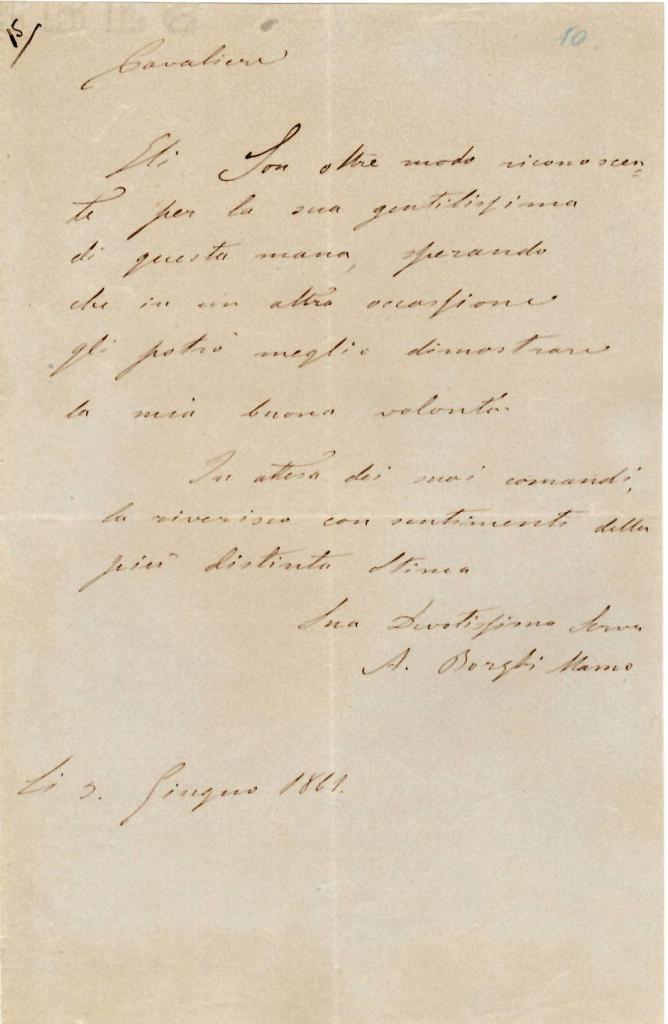 15/
10
Cavaliere
Gli Son oltre modo riconoscen=
te per la sua gentilissima
di questa mana, sperando
che in un altra occassione
gli potrò meglio dimostrare
la mia buona volontà.
In attesa dei suoi comandi,
la riverisco con sentimenti della
più distinta Stima
Sua Devotissima Serva
A. Borghi Mamo
Li 3. Giugno 1861.